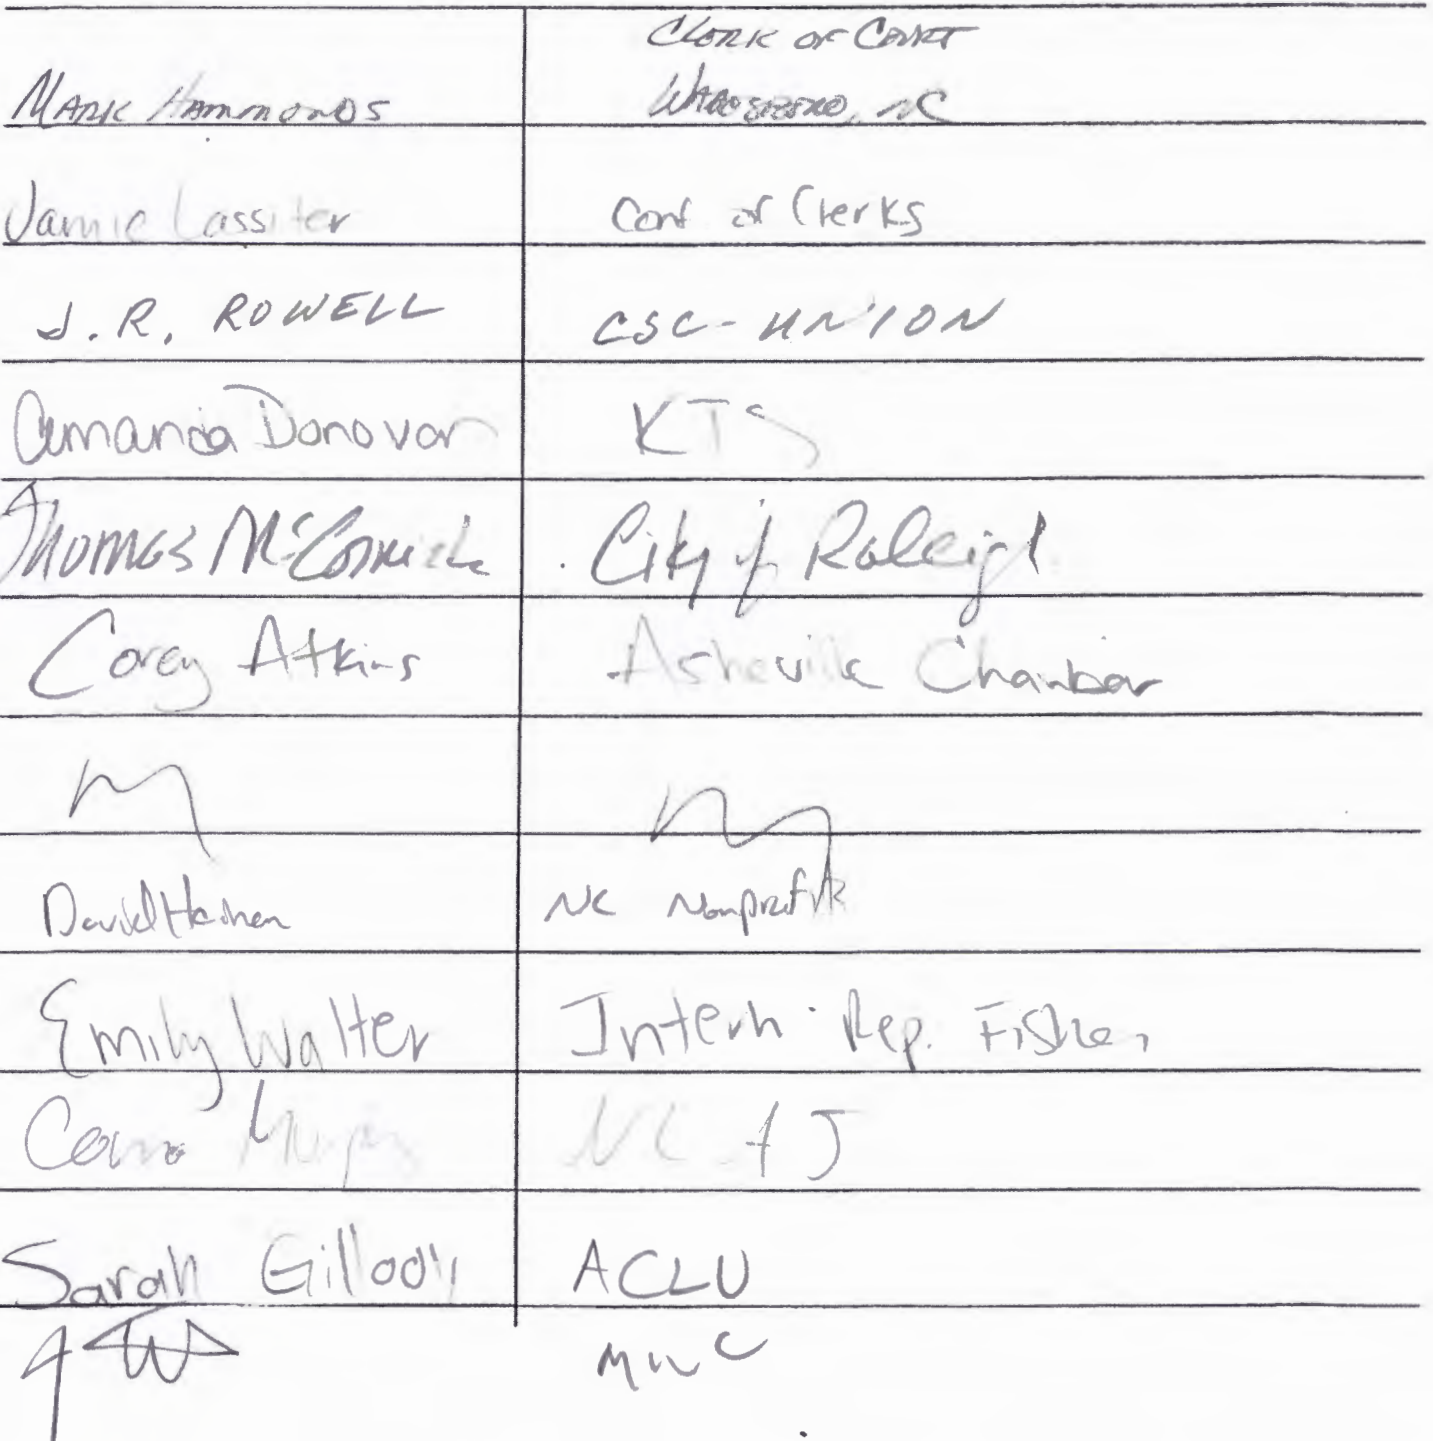 CLERK OF COURT
MARK HAMMONDS WADESBORO, NC
Jamie Lassiter Conf of Clerks
J. R. ROWELL CSC - UNION
Amanda Donovan KTS
Thomas McCormick City of Raleigh
Corey Atkins Asheville Chamber
David Heinen NC Nonprofits
Emily Walter Intern - Rep. Fisher
NC AJ
Sarah Gillooly ACLU